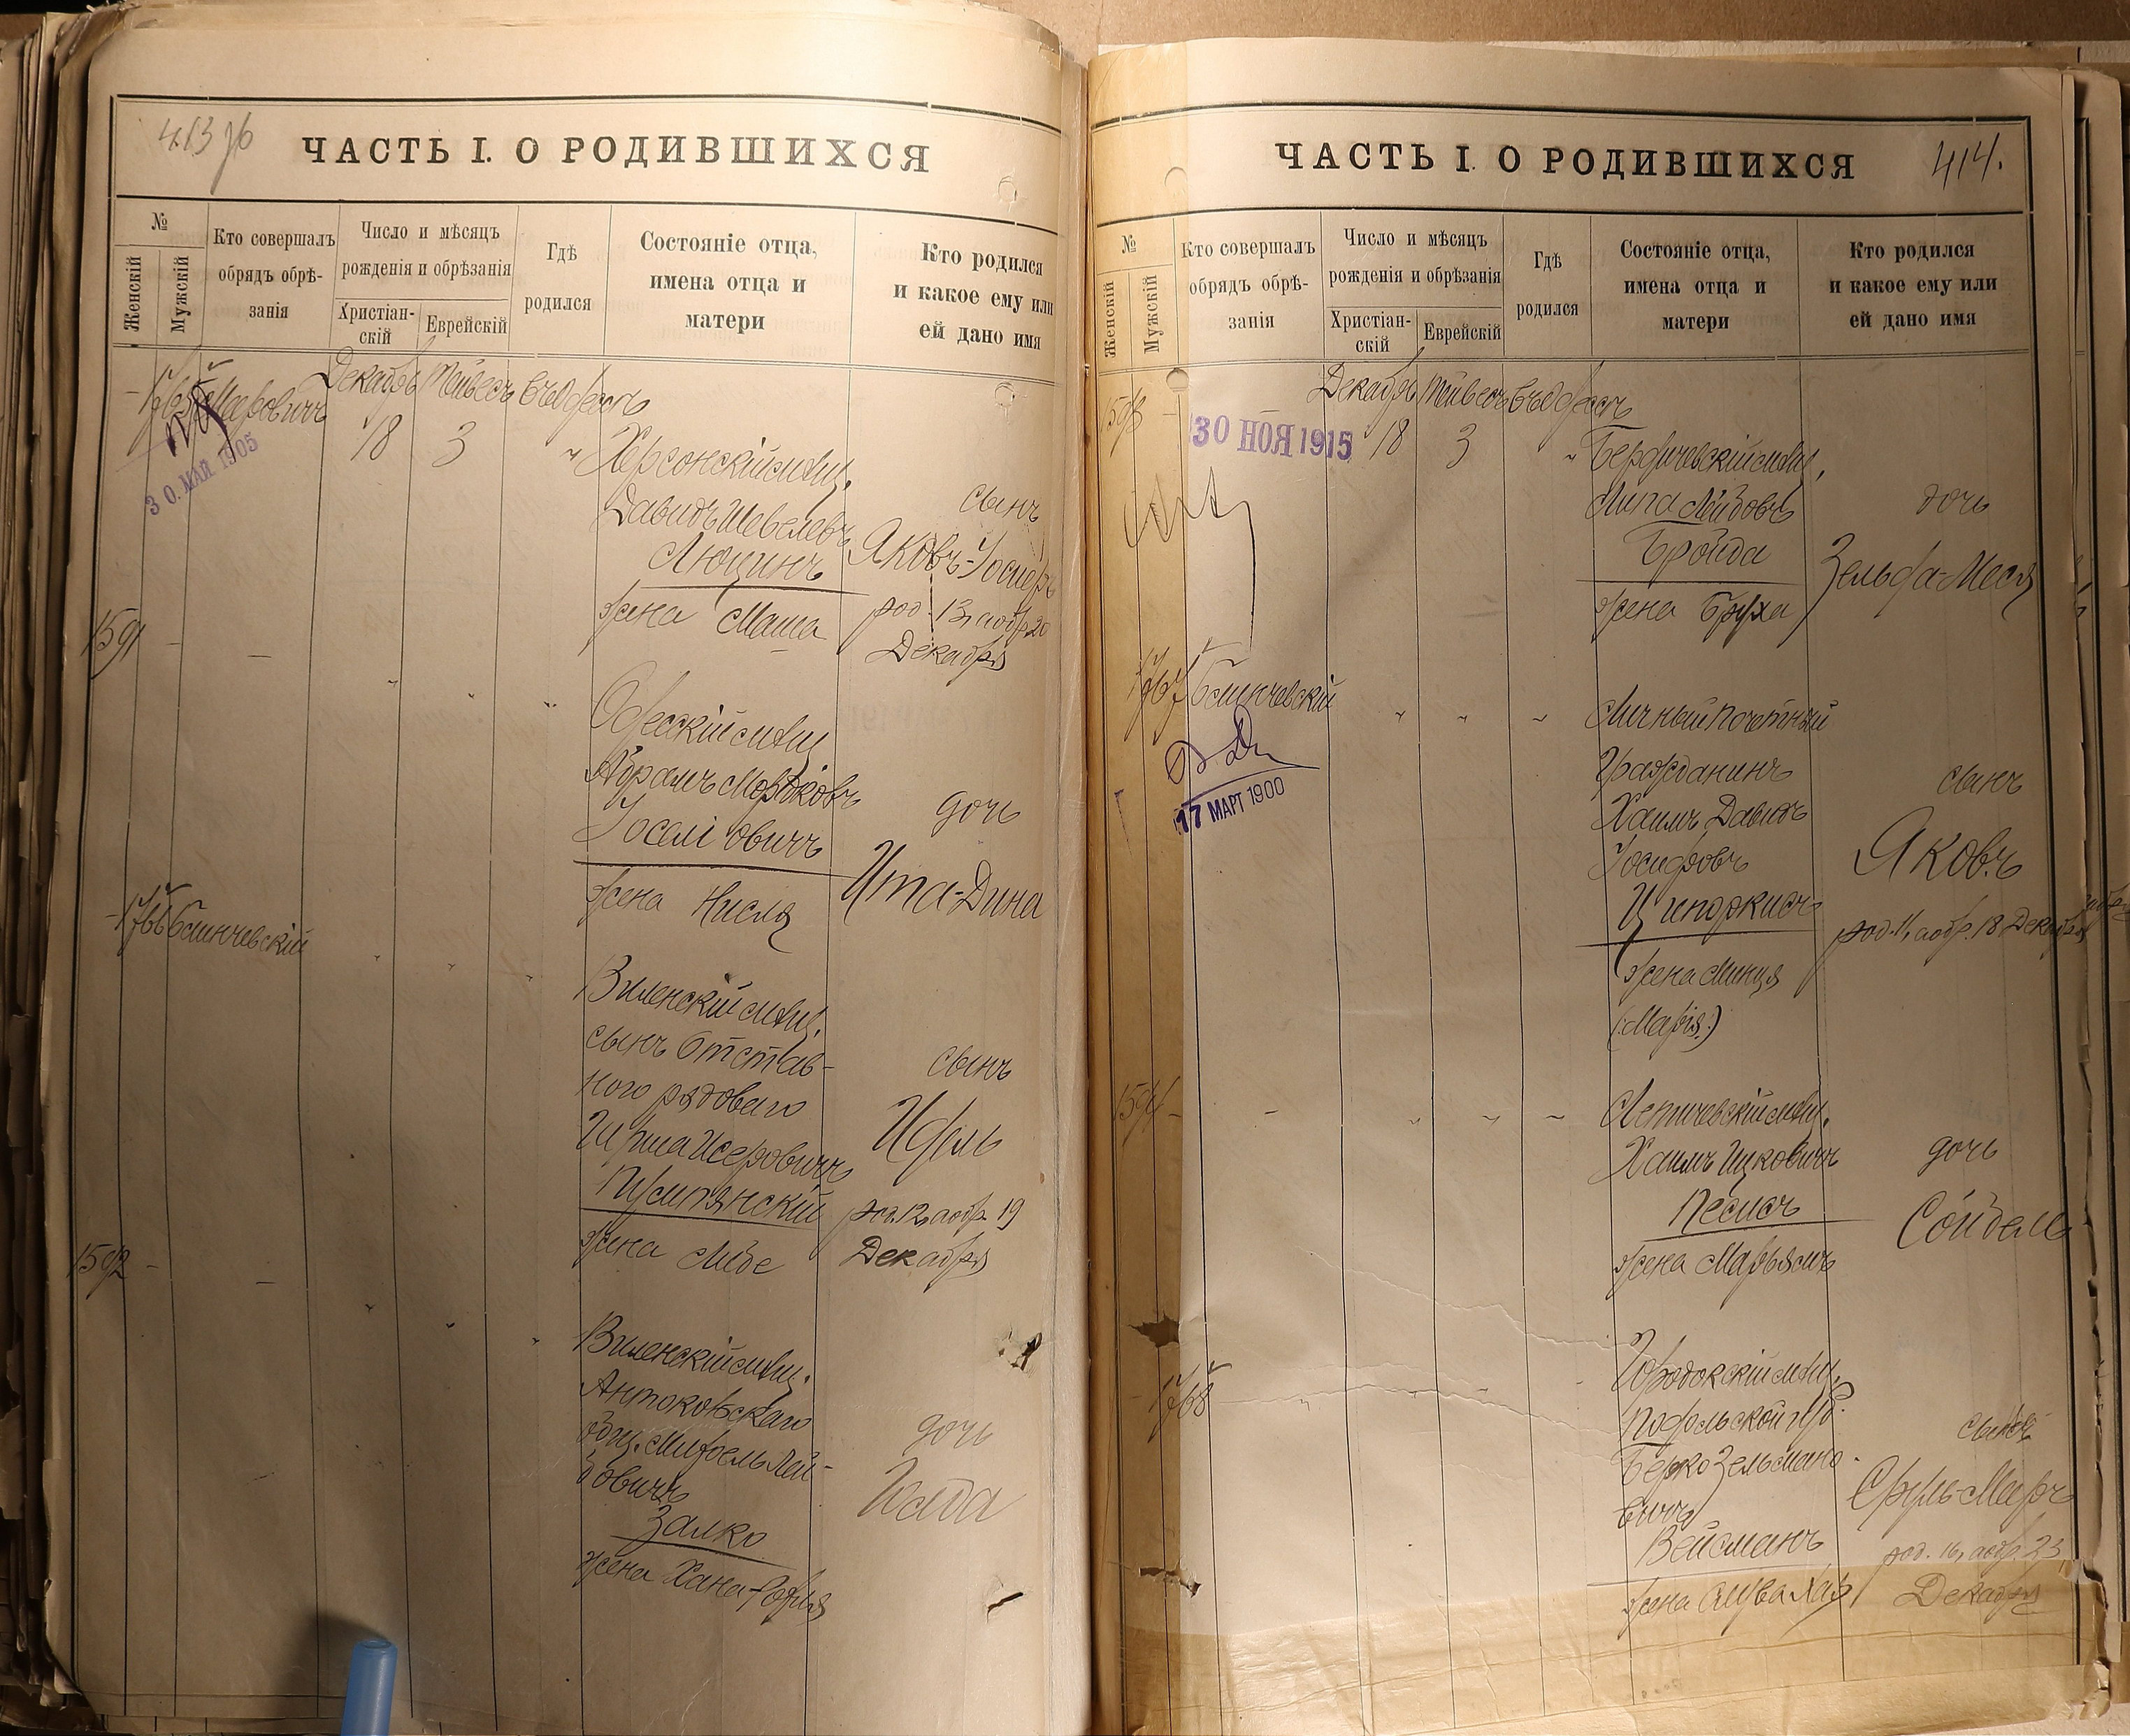 413 об
ЧАСТЬ I. О РОДИВШИХСЯ
№
Женскій
Мужскій
Кто совершалъ
обрядъ обрѣ-
занія
Число и мѣсяцъ
рожденія и обрѣзанія
Христіан-
скій
Еврейскій
Гдѣ
родился
Состояніе отца,
имена отца и
матери
Кто родился
и какое ему или
ей дано имя
Декабрь Тейвесъ Въ Одессѣ
18 3
30. МАЙ 1905
Херсонскій мѣщ.
Давидъ Шевелевъ
Люцинъ
жена Маша
сынъ
Яковъ-Іосифъ
род. 13, а обр. 20
Декабря
1591 -
Одесскій мѣщ
Абрамъ Мордковъ
Іоселіовичъ
жена Нися
дочь
Ита-Дина
1766
Виленскій мѣщ.
сынъ Отстав-
ного рядового
Исеровичъ
жена Либе
сынъ
Идель
род. 12, а обр. 19
Декабря
1592 -
Виленскій мѣщ.
Антокольскаго
общ. Лей-
бовичъ
Залко
жена Хана-Софья
дочь
ЧАСТЬ I. О РОДИВШИХСЯ
414.
№
Женскій
Мужскій
Кто совершалъ
обрядъ обрѣ-
занія
Число и мѣсяцъ
рожденія и обрѣзанія
Христіан-
скій
Еврейскій
Гдѣ
родился
Состояніе отца,
имена отца и
матери
Кто родился
и какое ему или
ей дано имя
1593 -
Декабрь Тейвесъ Въ Одессѣ
30 НОЯ 1915
18 3
Бердичевскій мѣщ.
Липа Лейбовъ
Бройда
жена Бруха
дочь
Зельда-Меся
1767
17 МАРТ 1900
Личный почетный
Гражданинъ
Хаимъ Давидъ
Іосифовъ
Ципоркисъ
жена Минця
(:Марія:)
сынъ
Яковъ
род. 11, а обр. 18 Декабря
1594 -
Летичевскій мѣщ.
Хаимъ Ицковичъ
Песисъ
жена Марьямъ
дочь
Сойбель
1768
Городокскій мѣщ.
Подольской губ.
Берко Зельмано-
вичъ
Вейсманъ
жена
сынъ
Сруль-Меръ
род. 16, а обр. 23
Декабря